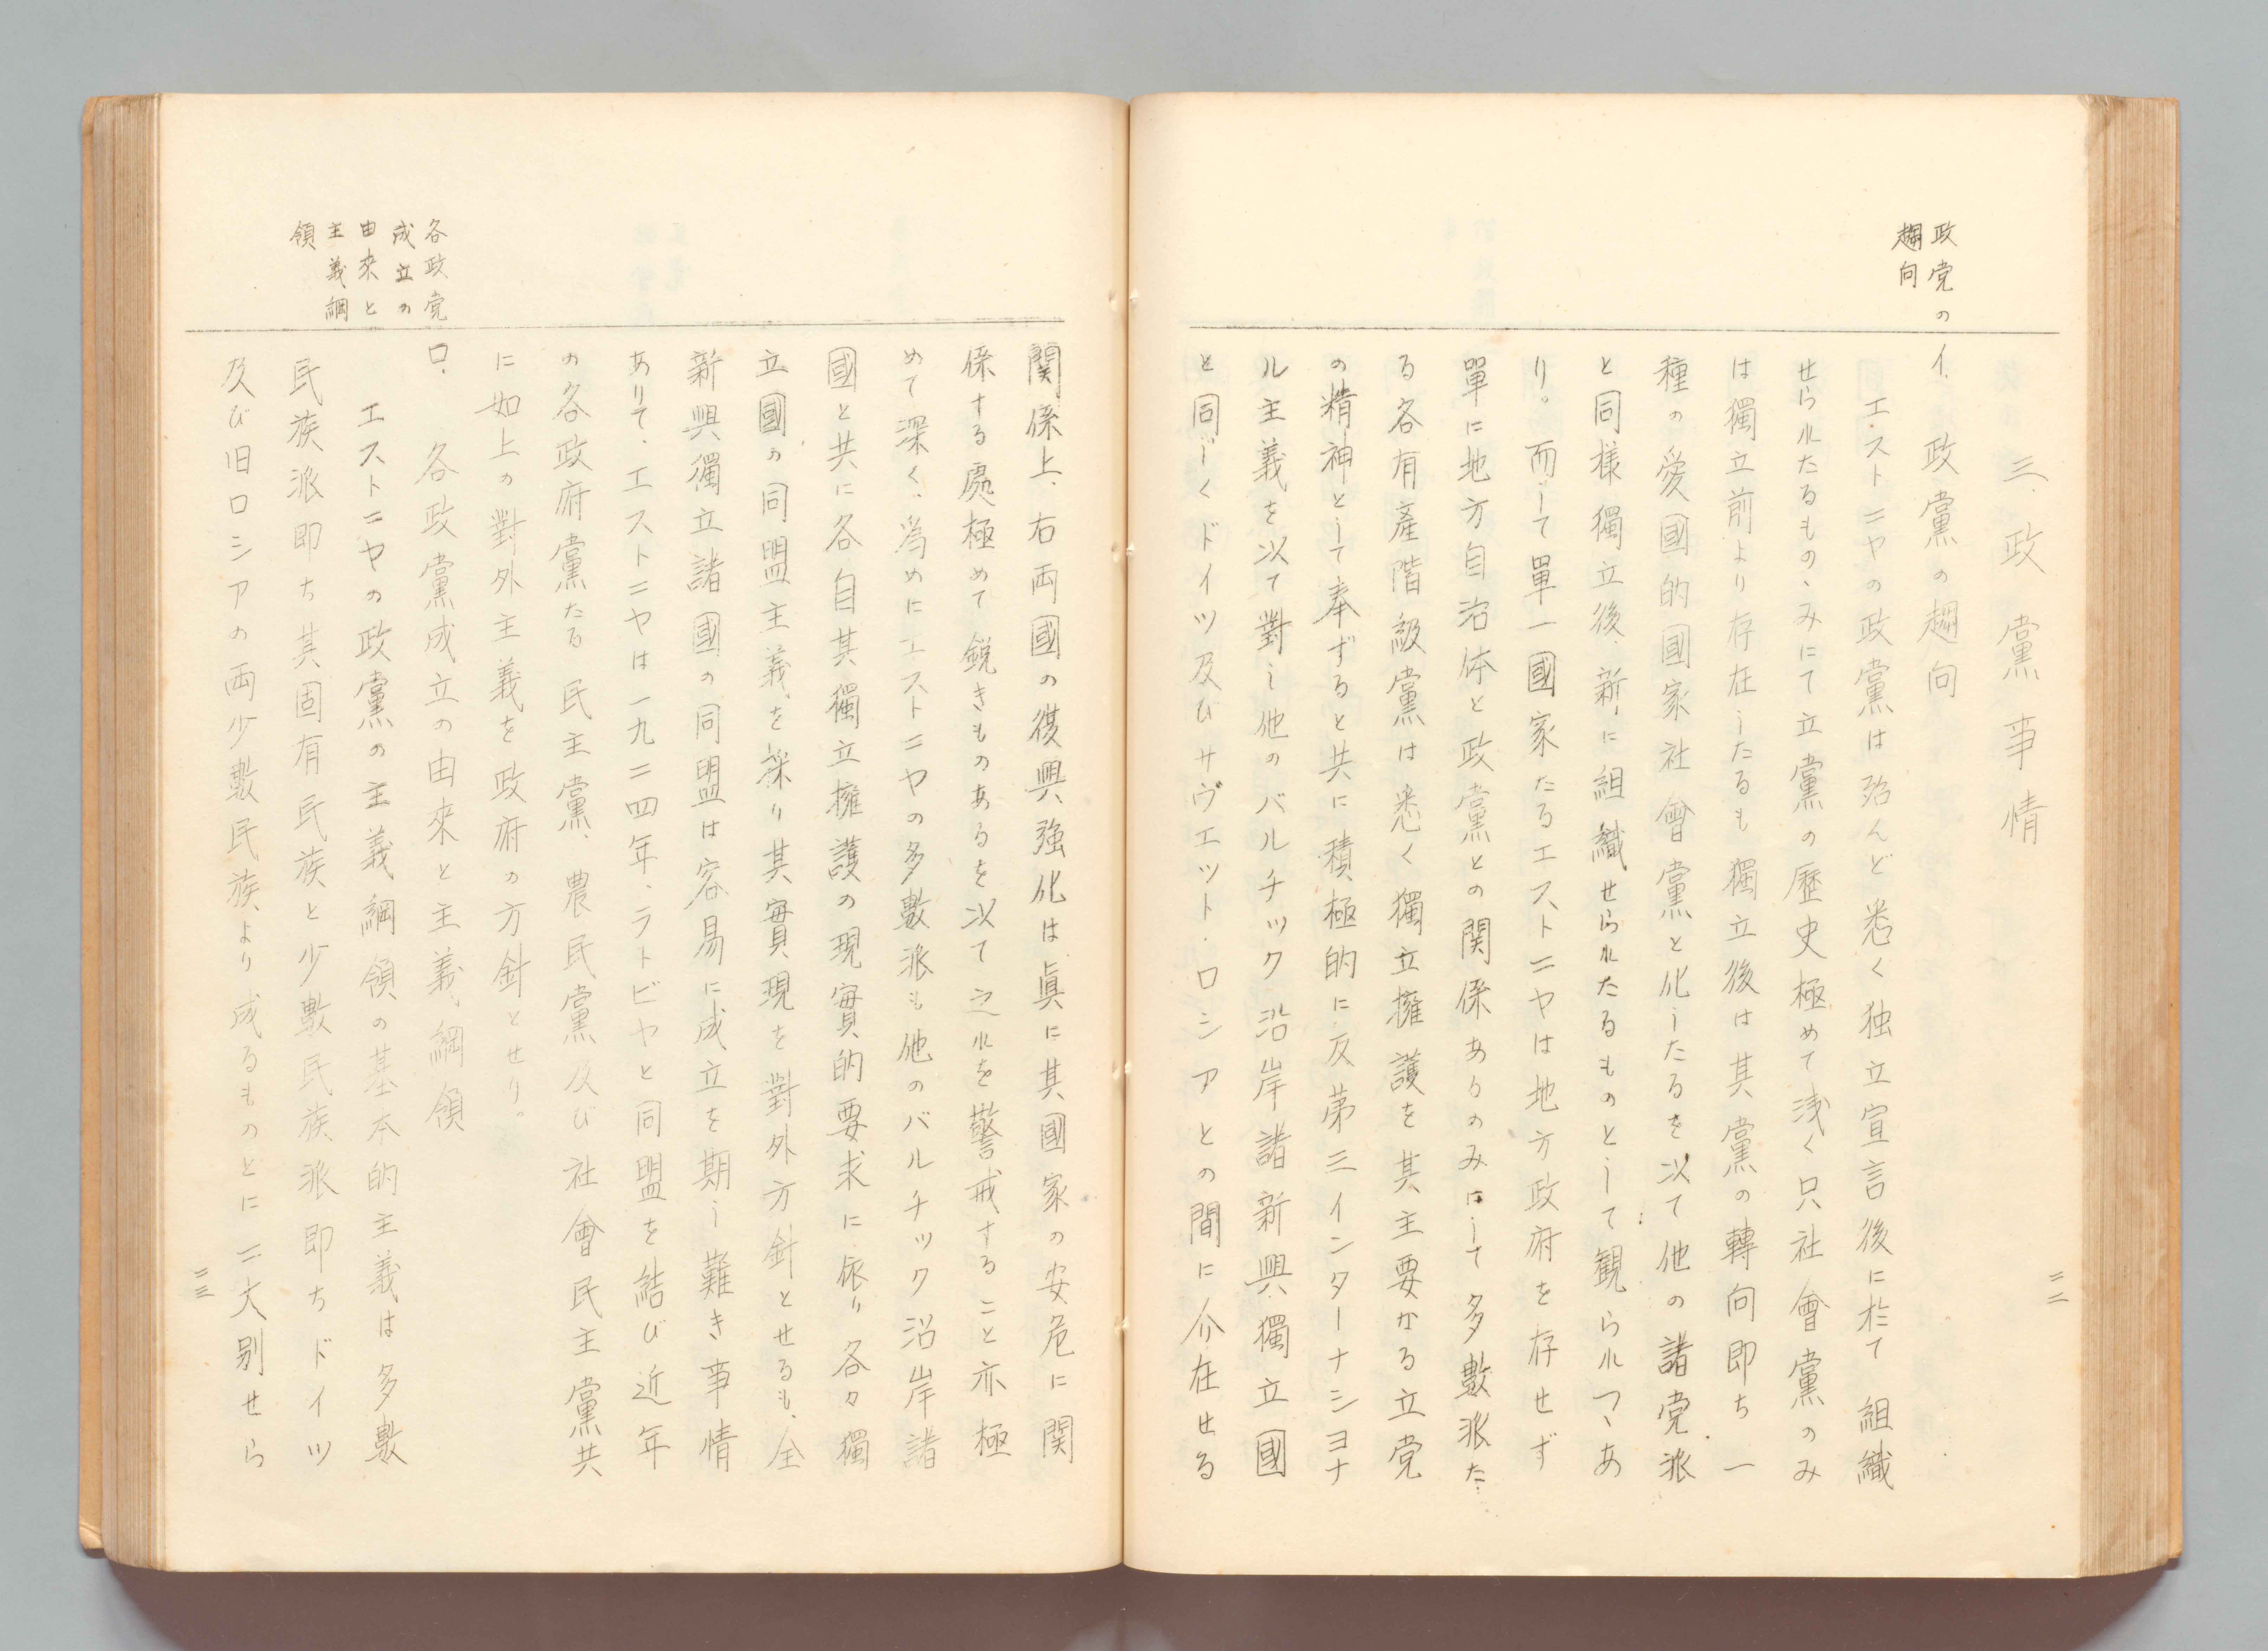 三、政黨事情
政党の
趨向
イ、政黨の趨向
エストニヤの政黨は殆んど悉く独立宣言後に於て組織
せられたるものゝみにて立黨の歴史極めて浅く只社會黨のみ
は獨立前より存在したるも獨立後は其黨の轉向即ち一
種の愛國的國家社會黨と化したるを以て他の諸党派
と同樣獨立後、新に組織せられたるものとして観らればあ
り。而して單一國家たるエストニヤは地方政府を存せず
單に地方自治体と政黨との関係あるのみにして多數派た
る各有產階級黨は悉く獨立擁護を其主要なる立党
の精神として奉ずると共に積極的に反第三インターナショナ
ル主義を以て對し他のバルチック沿岸諸新興獨立國
と同じくドイツ及びサヴエット・ロシアとの間に介在せる
二二
関係上、右両國の復興強化は眞に其國家の安危に関
係する處極めて鋭きものあるを以て之れを警戒すること亦極
めて深く、為めにエストニヤの多數派も他のバルチック沿岸諸
國と共に各自其獨立擁護の現實的要求に依り各々獨
立國の同盟主義を採り其實現を對外方針とせるも、全
新興獨立諸國の同盟は容易に成立を期し難き事情
ありて、エストニヤは一九二四年、ラトビヤと同盟を結び近年
の各政府黨たる民主黨、農民黨及び社會民主黨共
に如上の對外主義を政府の方針とせり。
各政党
成立の
由來と
主義綱
領
ロ、各政黨成立の由來と主義綱領
エストニヤの政黨の主義綱領の基本的主義は多數
民族派即ち其固有民族と少數民族派即ちドイツ
及び旧ロシアの両少數民族より成るものとに二大別せら
二三